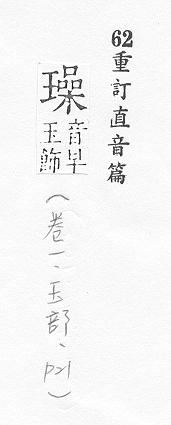 62重訂直音篇
璪
音早
玉飾
(卷一、玉部、p21)